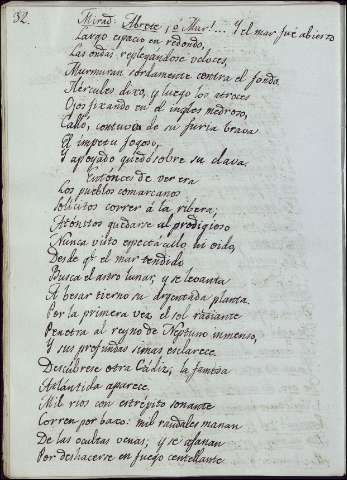 32.
Mirad: Abrete, ó Mar!... Y el mar fué abierto
Largo espacio en redondo,
Las ondas replegandose veloces,
Murmuran sordamente contra el fondo.
Hércules dixo, y luego los atroces
Ojos fixando en el ingles medroso,
Calló, contuvo de su furia brava
El impetu fogoso,
Y apoyado quedó sobre su clava.
Entónces de ver era
Los pueblos comarcanos
Solícitos correr á la ribera;
Atónitos quedarse al prodigioso
Nunca visto espectáculo ni oido,
Desde qe. el mar tendido
Busca el astro lunar, y se levanta
A besar tierno su argentada planta.
Por la primera vez el sol radiante
Penetra al reyno de Neptuno inmenso,
Y sus profundas simas esclarece.
Descúbrese otra Cádiz; la famosa
Atlántida aparece.
Mil rios con estrépito sonante
Corren por baxo: mil raudales manan
De las ocultas venas; y se afanan
Por deshacerse en fuego centellante